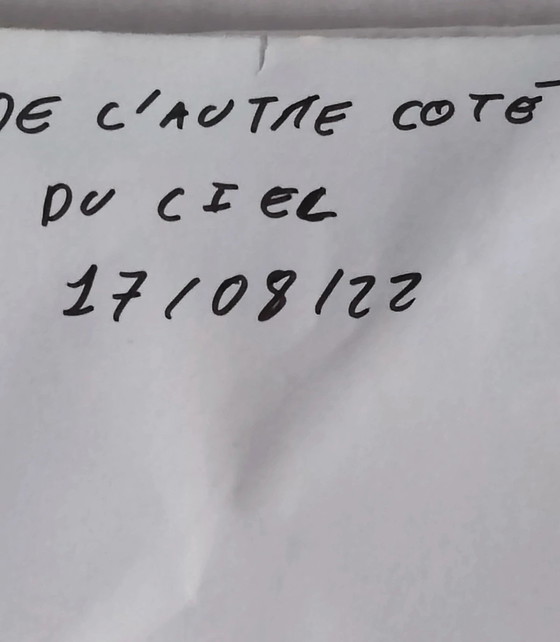 DE L'AUTRE COTÉ
DU CIEL
17/08/22